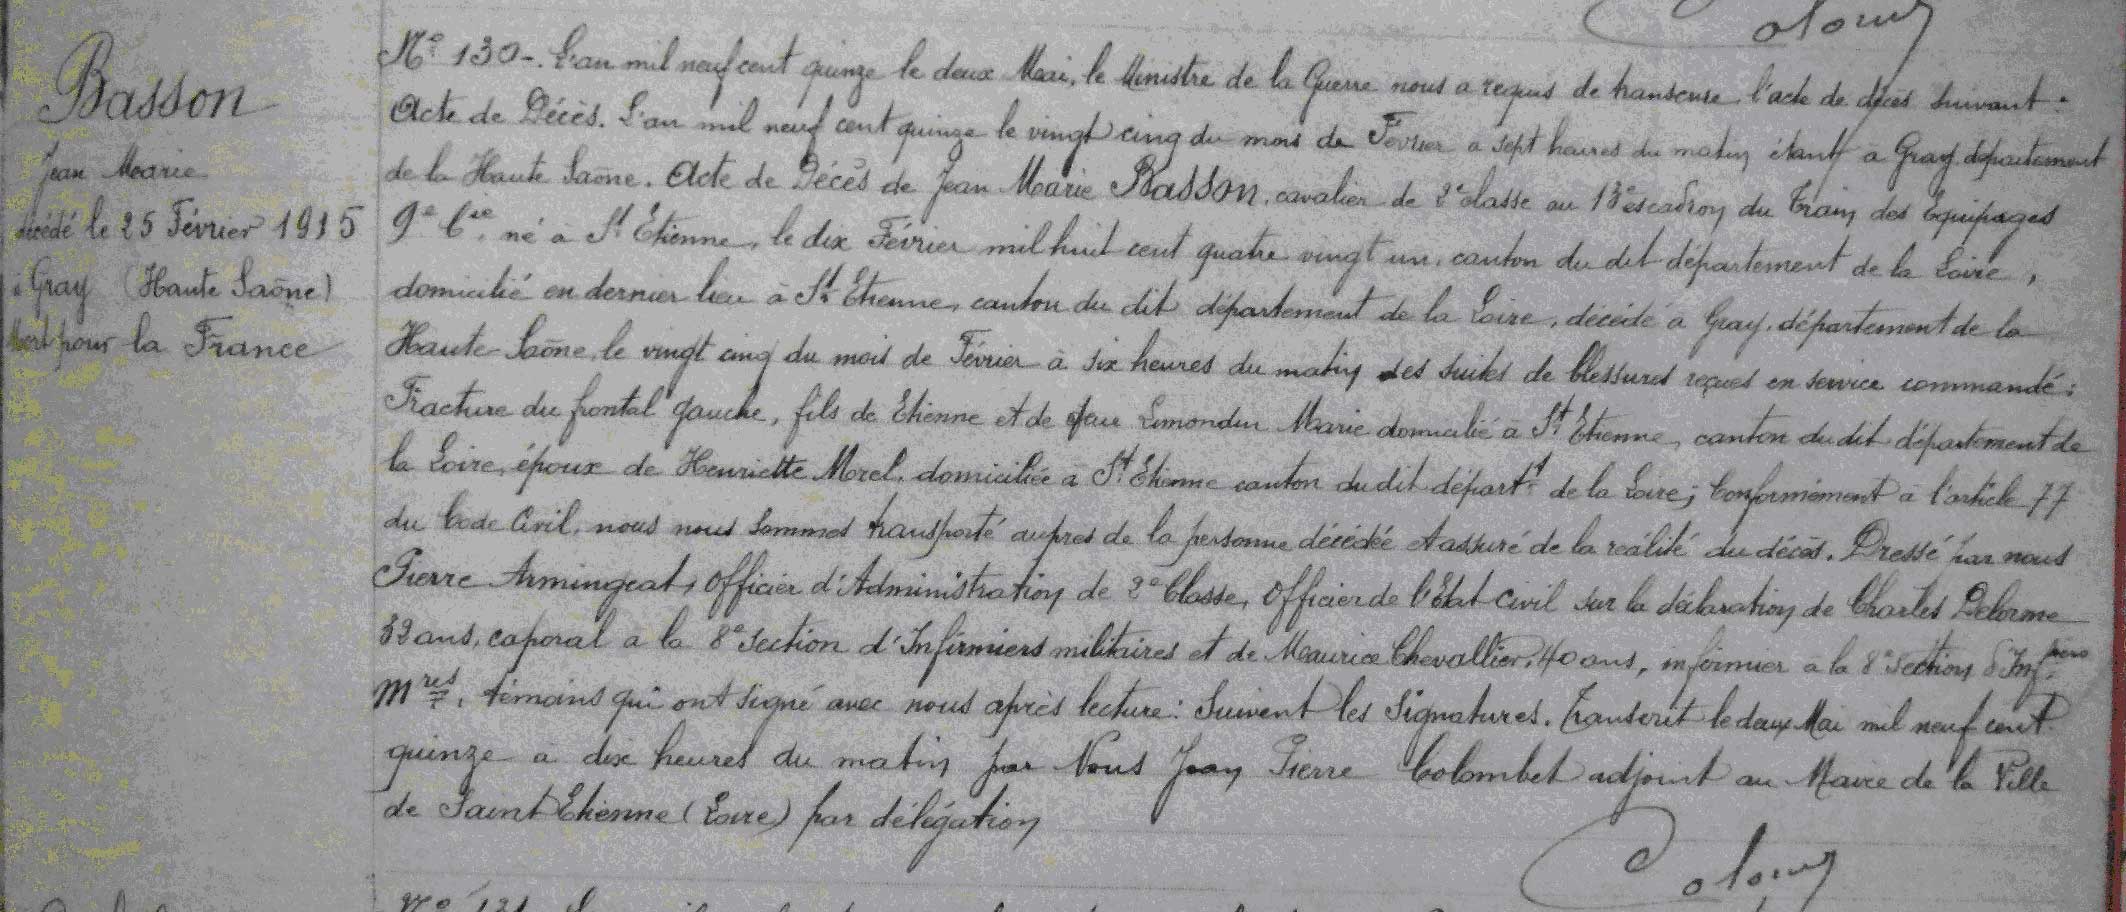 Basson
Jean Marie
décédé le 25 Février 1915
à Gray (Haute Saône)
Mort pour la France
N° 130-. L'an mil neuf cent quinze le deux Mai, le Ministre de la Guerre nous a requis de transcrire l'acte de décès suivant :
Acte de Décès. L'an mil neuf cent quinze le vingt cinq du mois de Février à sept heures du matin étant à Gray département
de la Haute Saône. Acte de Décès de Jean Marie Basson, cavalier de 2e classe au 13e escadron du Train des Équipages
9e Cie, né à St Etienne, le dix Février mil huit cent quatre vingt un, canton du dit département de la Loire,
domicilié en dernier lieu à St Etienne, canton du dit département de la Loire, décédé à Gray, département de la
Haute Saône, le vingt cinq du mois de Février à six heures du matin des suites de blessures reçues en service commandé :
Fracture du frontal gauche, fils de Etienne et de Limondin Marie domicilié à St Etienne, canton du dit département de
la Loire, époux de Henriette Morel, domiciliée à St Etienne canton du dit départt de la Loire ; Conformément à l'article 77
du Code Civil, nous nous sommes transporté auprès de la personne décédée et assuré de la réalité du décès. Dressé par nous
Pierre Armingeat, Officier d'Administration de 2e Classe, Officier de l'Etat civil sur la déclaration de Charles Delorme
32 ans, caporal à la 8e section d'Infirmiers militaires et de Maurice Chevallier, 40 ans, infirmier à la 8e section d'Inf.
Mres, témoins qui ont signé avec nous après lecture : Suivent les Signatures. Transcrit le deux Mai mil neuf cent
quinze à dix heures du matin par Nous Jean Pierre Colombet adjoint au Maire de la Ville
de Saint Etienne (Loire) par délégation